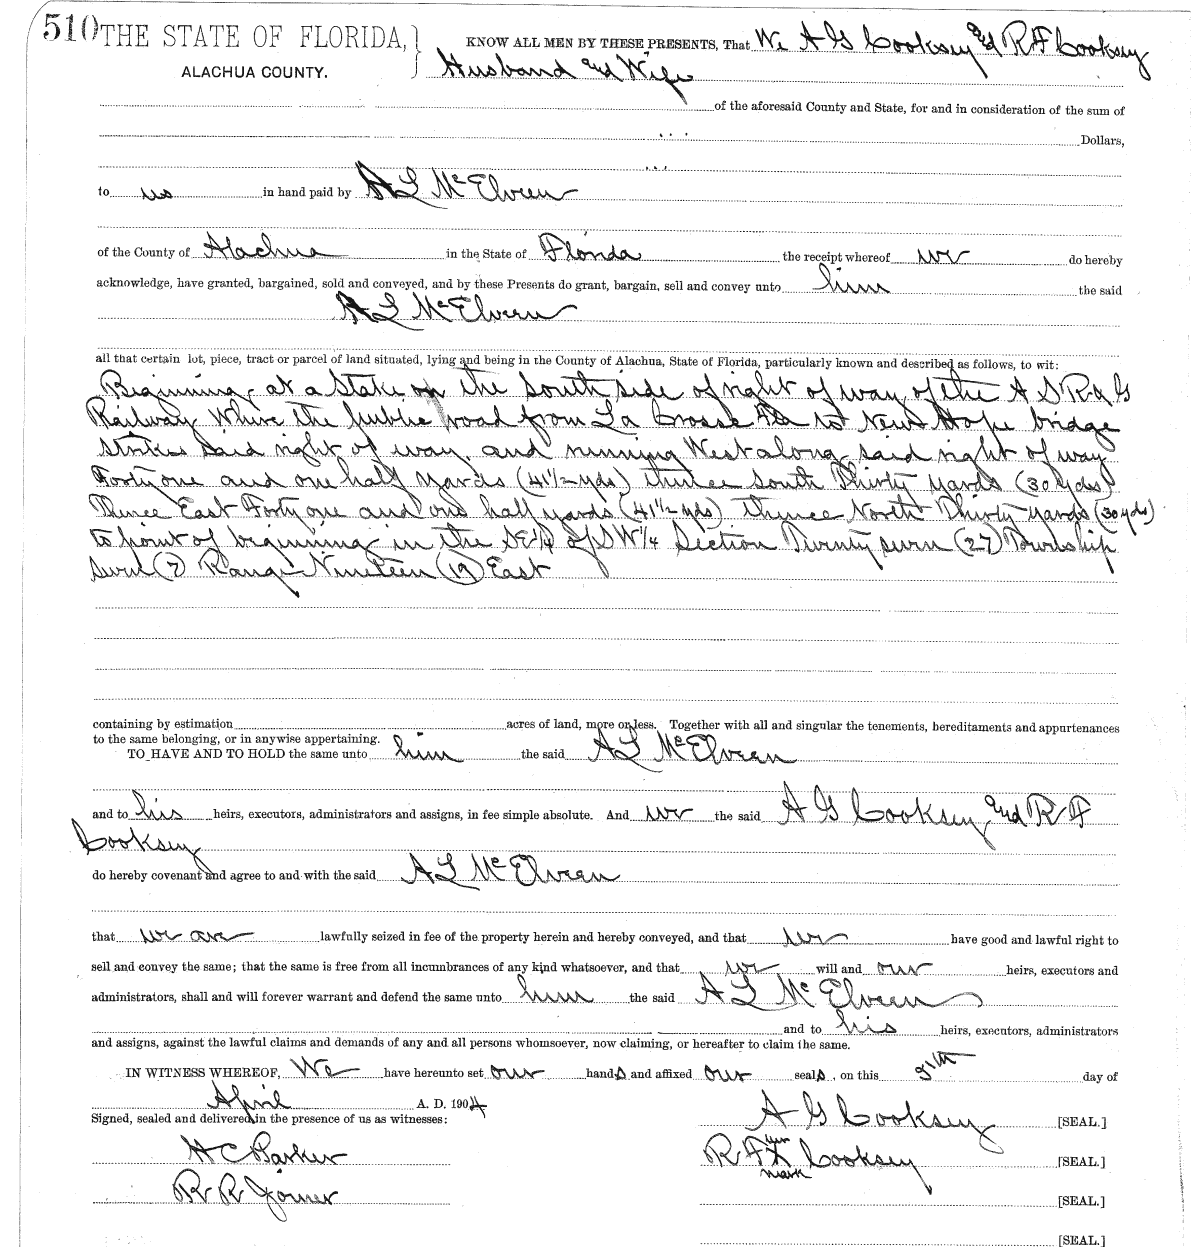 510 THE STATE OF FLORIDA,
ALACHUA COUNTY.
KNOW ALL MEN BY THESE PRESENTS, That We A G Cooksey and R F Cooksey
Husband and Wife
of the aforesaid County and State, for and in consideration of the sum of
Dollars,
to us in hand paid by A L McElveen
of the County of Alachua in the State of Florida the receipt whereof we do hereby
acknowledge, have granted, bargained, sold and conveyed, and by these Presents do grant, bargain, sell and convey unto him the said
A L McElveen
all that certain lot, piece, tract or parcel of land situated, lying and being in the County of Alachua, State of Florida, particularly known and described as follows, to wit:
Beginning at a Stake on the South side of right of way of the A S R & G
Railway Where the public road from La Crosse Fla to New Hope bridge
strikes said right of way, and running West along said right of way
Forty one and one half yards (41½ yds) thence South Thirty yards (30 yds)
Thence East Forty one and one half yards (41½ yds) thence North Thirty yards (30 yds)
to point of beginning in the SE¼ of SW¼ Section Twenty seven (27) Township
seven (7) Range Nineteen (19) East
containing by estimation acres of land, more or less. Together with all and singular the tenements, hereditaments and appurtenances
to the same belonging, or in anywise appertaining.
TO HAVE AND TO HOLD the same unto him the said A L McElveen
and to his heirs, executors, administrators and assigns, in fee simple absolute. And we the said A G Cooksey and R F
Cooksey
do hereby covenant and agree to and with the said A L McElveen
that we are lawfully seized in fee of the property herein and hereby conveyed, and that we have good and lawful right to
sell and convey the same; that the same is free from all incumbrances of any kind whatsoever, and that we will and our heirs, executors and
administrators, shall and will forever warrant and defend the same unto him the said A L McElveen
and to his heirs, executors, administrators
and assigns, against the lawful claims and demands of any and all persons whomsoever, now claiming, or hereafter to claim the same.
IN WITNESS WHEREOF, We have hereunto set our hands and affixed our seals, on this day of
April A. D. 1904
Signed, sealed and delivered in the presence of us as witnesses:
A G Cooksey [SEAL.]
H C Parker
R F her X mark Cooksey [SEAL.]
R R Joiner
[SEAL.]
[SEAL.]